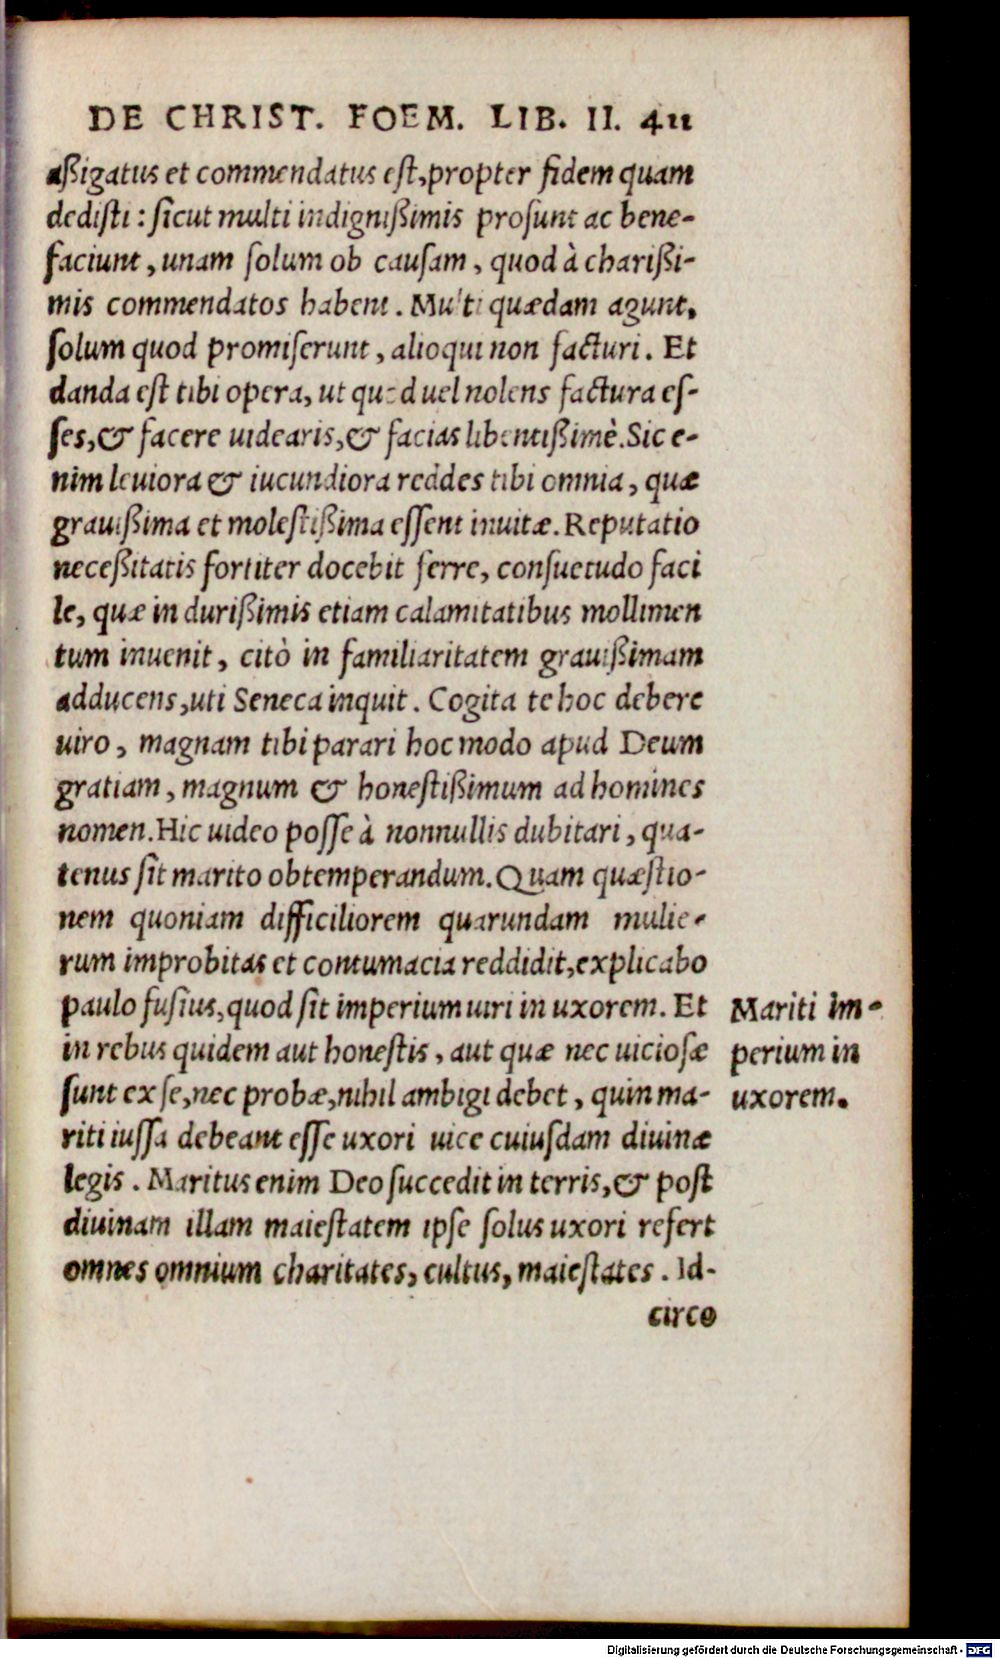 DE CHRIST. FOEM. LIB. II. 411
aßigatus et commendatus est, propter fidem quam
dedisti : sicut multi indignißimis prosunt ac bene-
faciunt, unam solum ob causam, quod à charißi-
mis commendatos habent. Multi quædam agunt,
solum quod promiserunt, alioqui non facturi. Et
danda est tibi opera, ut quod uel nolens factura es-
ses, & facere uidearis, & facias libentißimè. Sic e-
nim leuiora & iucundiora reddes tibi omnia, quæ
grauißima et molestißima essent inuitæ. Reputatio
neceßitatis fortiter docebit ferre, consuetudo faci
le, quæ in durißimis etiam calamitatibus mollimen
tum inuenit, citò in familiaritatem grauißimam
adducens, uti Seneca inquit. Cogita te hoc debere
uiro, magnam tibi parari hoc modo apud Deum
gratiam, magnum & honestißimum ad homines
nomen. Hic uideo posse à nonnullis dubitari, qua-
tenus sit marito obtemperandum. Quam quæstio-
nem quoniam difficiliorem quarundam mulie-
rum improbitas et contumacia reddidit, explicabo
paulo fusius, quod sit imperium uiri in uxorem. Et
in rebus quidem aut honestis, aut quæ nec uiciosæ
sunt ex se, nec probæ, nihil ambigi debet, quin ma-
riti iussa debeant esse uxori uice cuiusdam diuinæ
legis. Maritus enim Deo succedit in terris, & post
diuinam illam maiestatem ipse solus uxori refert
omnes omnium charitates, cultus, maiestates. Id-
circo
Mariti im-
perium in
uxorem.
Digitalisierung gefördert durch die Deutsche Forschungsgemeinschaft - DFG